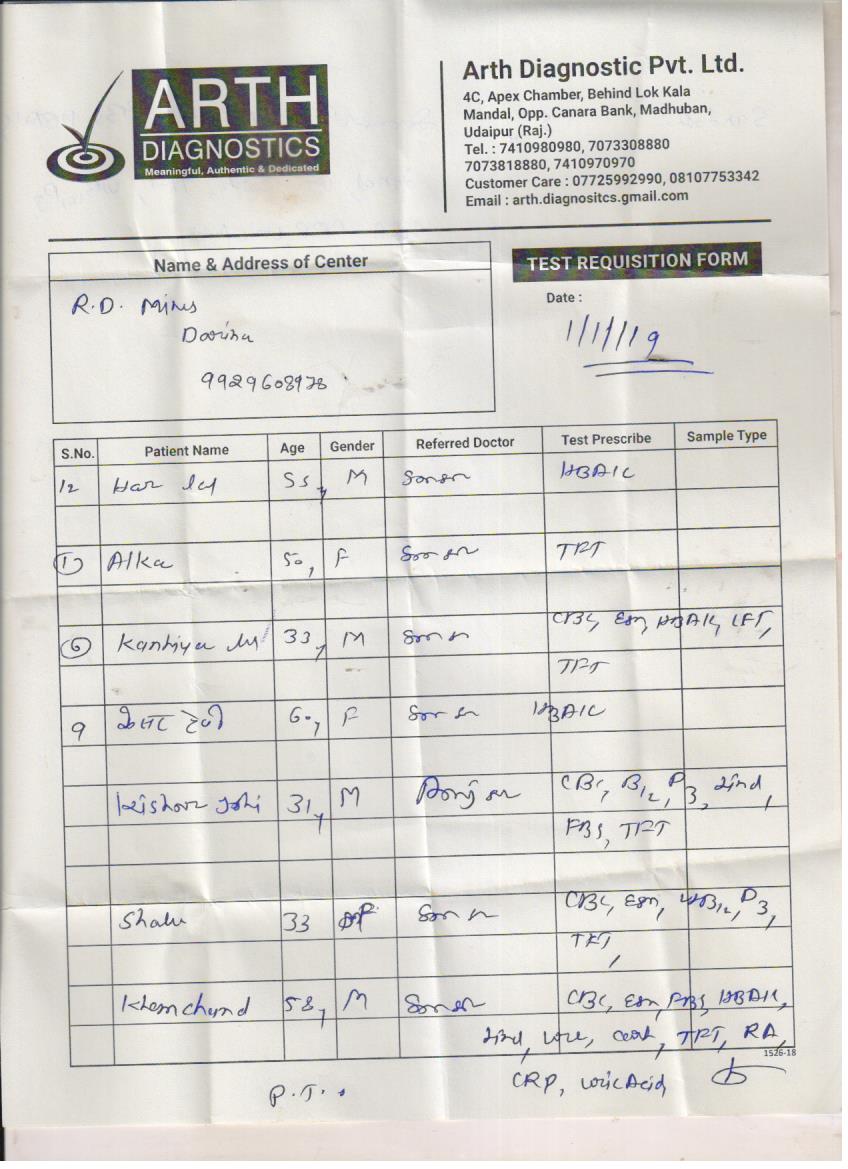 ARTH
DIAGNOSTICS
Meaningful, Authentic & Dedicated
Arth Diagnostic Pvt. Ltd.
4C, Apex Chamber, Behind Lok Kala
Mandal, Opp. Canara Bank, Madhuban,
Udaipur (Raj.)
Tel. : 7410980980, 7073308880
7073818880, 7410970970
Customer Care : 07725992990, 08107753342
Email : arth.diagnositcs.gmail.com
Name & Address of Center
TEST REQUISITION FORM
R.D. Mines
Date :
1/11/19
9929608978
S.No. Patient Name Age Gender Referred Doctor Test Prescribe Sample Type
12 Har lal 55, M HBA1C
1 Alka 50, F TFT
6 Kanhiya lal 33, M CBC, ESR, HBA1C, LFT,
TFT
9 देवी 60, F HBA1C
Kishor Joshi 31, M CBC, B12, D3, Lipid,
FBS, TFT
Shalu 33 F CBC, ESR, B12, D3,
TFT,
Khemchand 58, M CBC, ESR, FBS, HBA1C,
Lipid, Urea, Creat, TFT, RA,
1526-18
CRP, Uric Acid
P.T.